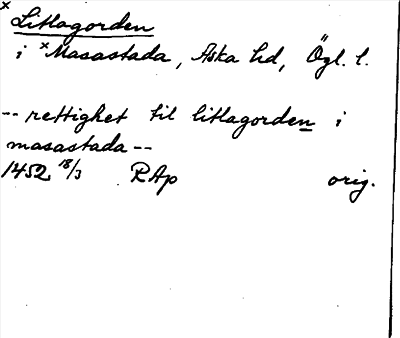 x Litlagorden
i xMasastada, Aska hd, Ögl. l.
-- rettighet til litlagorden i
masastada --
1452 18/3 RAp orig.